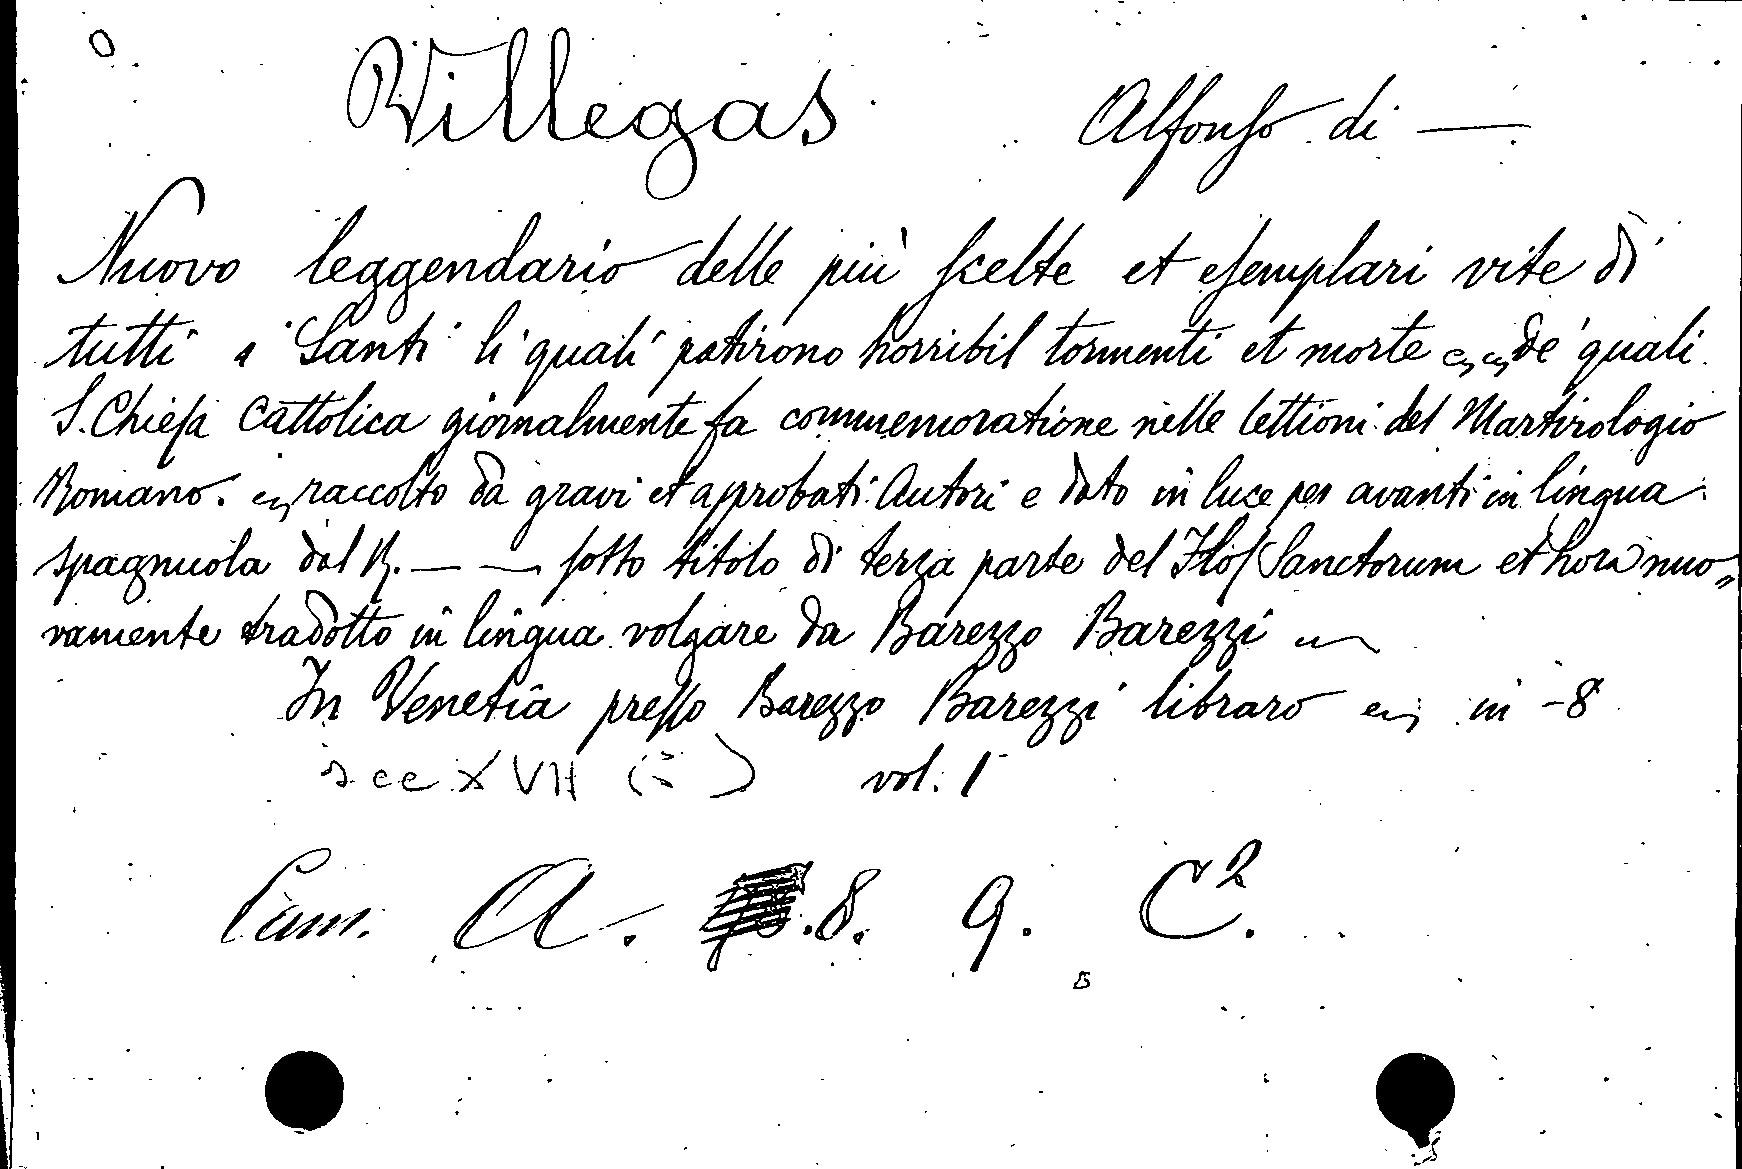 Villegas Alfonso di —
Nuovo leggendario delle più scelte et esemplari vite di
tutti i Santi li quali patirono horribil tormenti et morte de' quali
S. Chiesa Cattolica giornalmente fa commemoratione nelle lettioni del Martirologio
Romano. raccolto da gravi et approbati Autori e dato in luce per avanti in lingua
spagnuola dal R. — — sotto titolo di terza parte del Flos Sanctorum et hora nuo„
vamente tradotto in lingua volgare da Barezzo Barezzi
In Venetia presso Barezzo Barezzi libraro in -8
sec XVII ( ) vol. 1
Cam. A. 8. 9. C².